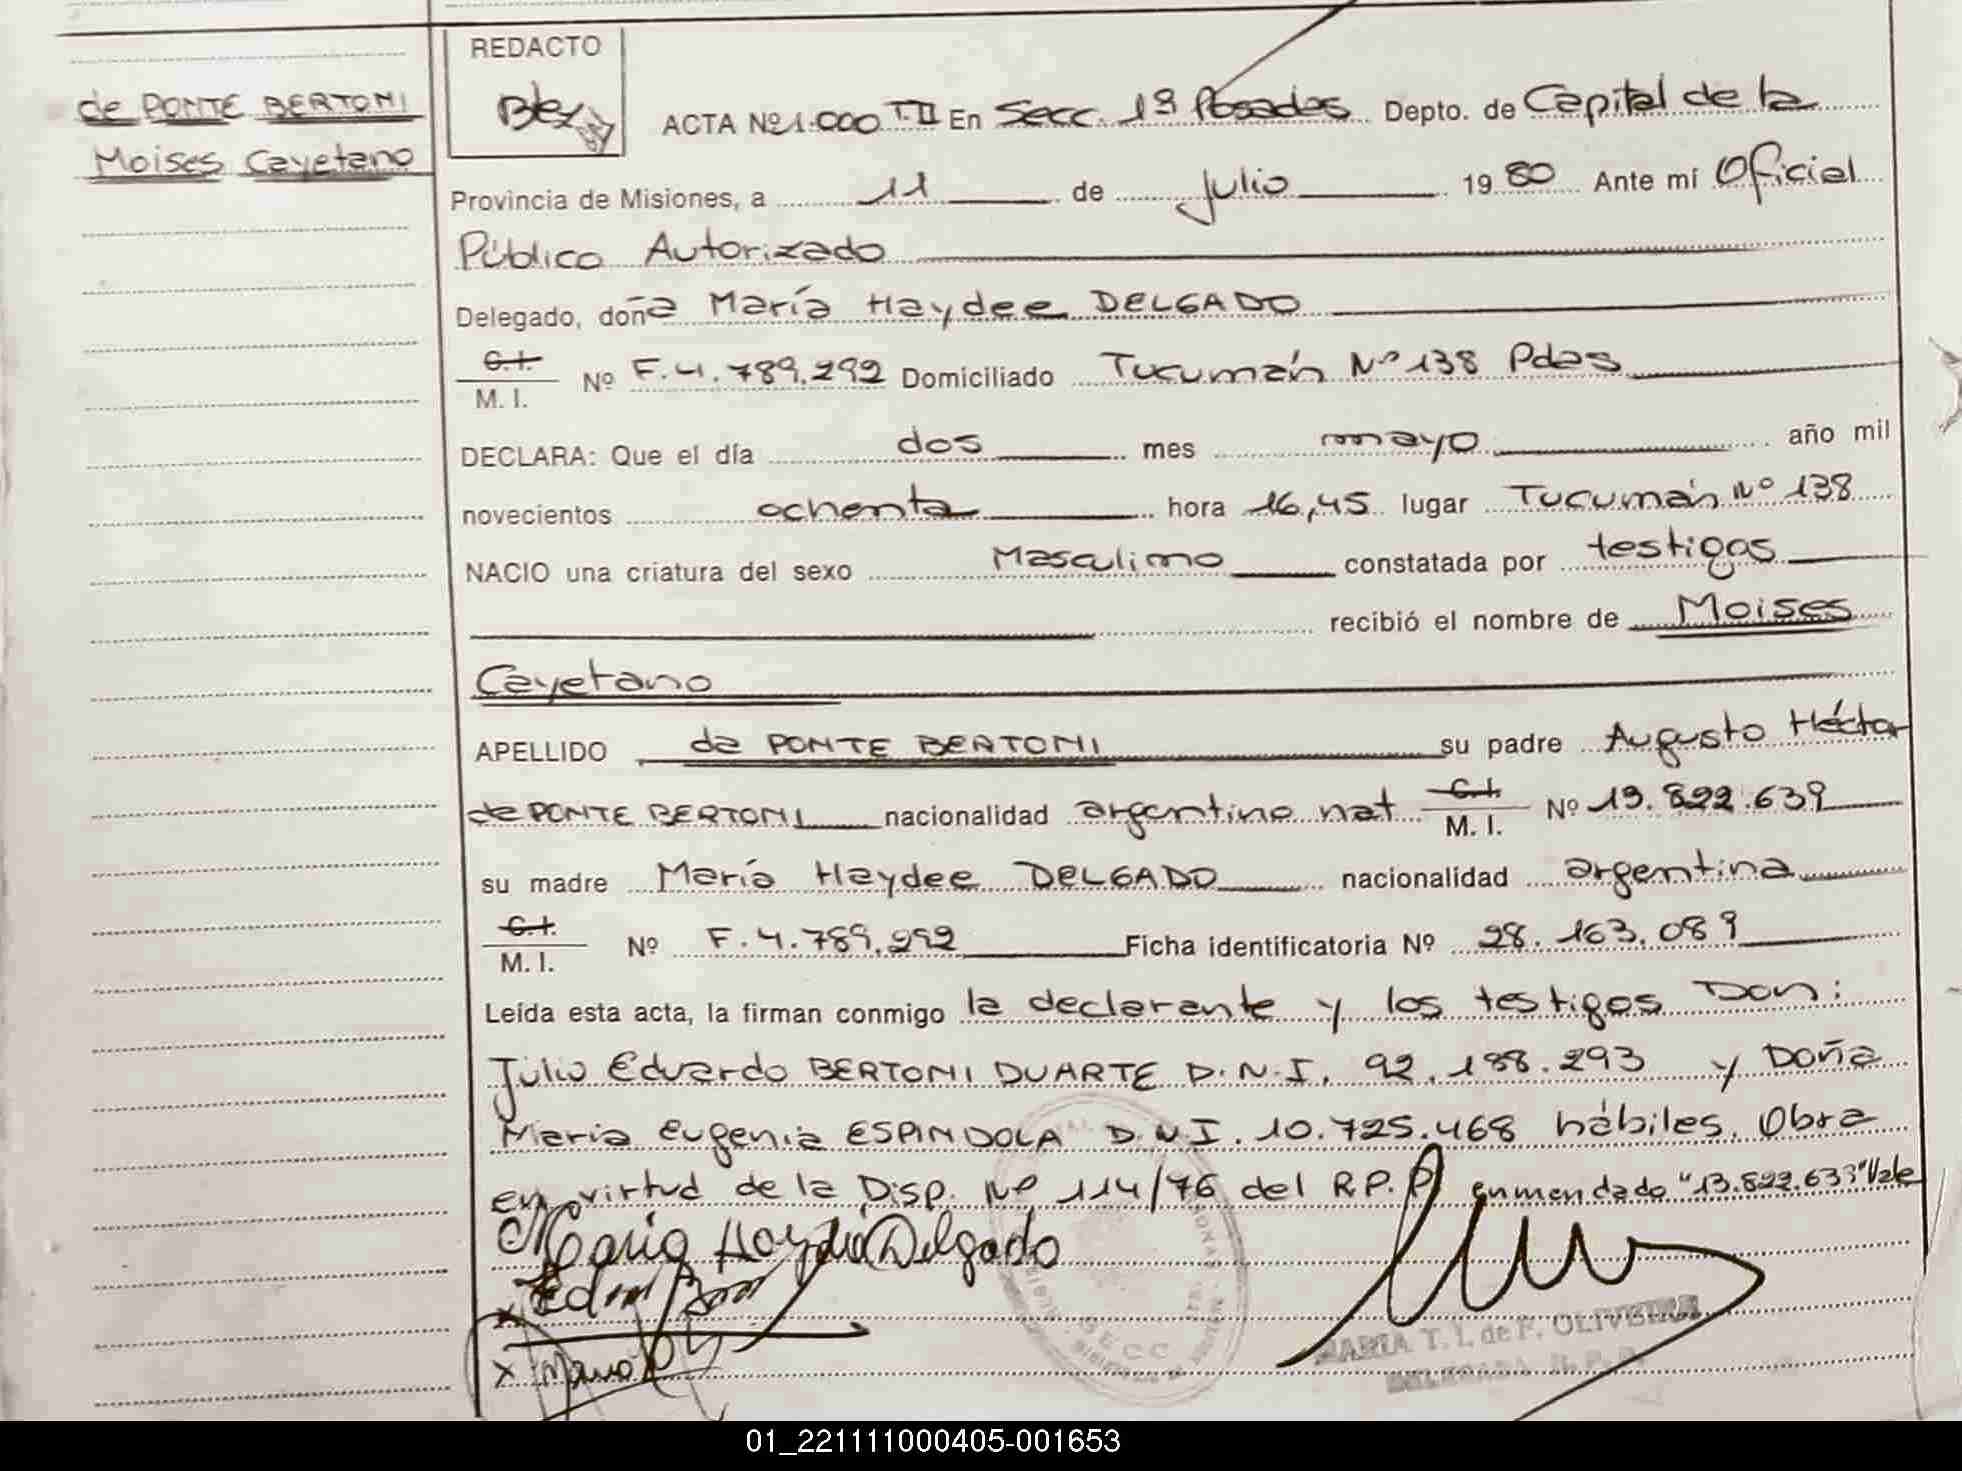 REDACTO
de PONTE BERTONI
Moises Cayetano
ACTA Nº 1.000 T.II En Secc. 1ª Posadas Depto. de Capital de la
Provincia de Misiones, a 11 de Julio 1980 Ante mí Oficial
Público Autorizado
Delegado, doña María Haydee DELGADO
C.I.
M. I. Nº F.4.789.292 Domiciliado Tucumán Nº 138 Pdas
DECLARA: Que el día dos mes mayo año mil
novecientos ochenta hora 16,45 lugar Tucumán Nº 138
NACIO una criatura del sexo Masculino constatada por testigos
recibió el nombre de Moises
Cayetano
APELLIDO de PONTE BERTONI su padre Augusto Héctor
de PONTE BERTONI nacionalidad argentino nat C.I. M. I. Nº 13.822.639
su madre María Haydee DELGADO nacionalidad argentina
C.I.
M. I. Nº F.4.789.292 Ficha identificatoria Nº 28.163.089
Leída esta acta, la firman conmigo la declarante y los testigos Don:
Julio Eduardo BERTONI DUARTE D.N.I. 92.188.293 y Doña
Maria Eugenia ESPINDOLA D.N.I. 10.725.468 hábiles. Obra
en virtud de la Disp. Nº 114/76 del R.P.P enmendado "13.822.639" Vale
Maria Haydee Delgado
MARIA T. I. de F. OLIVEIRA
SECC
01_221111000405-001653